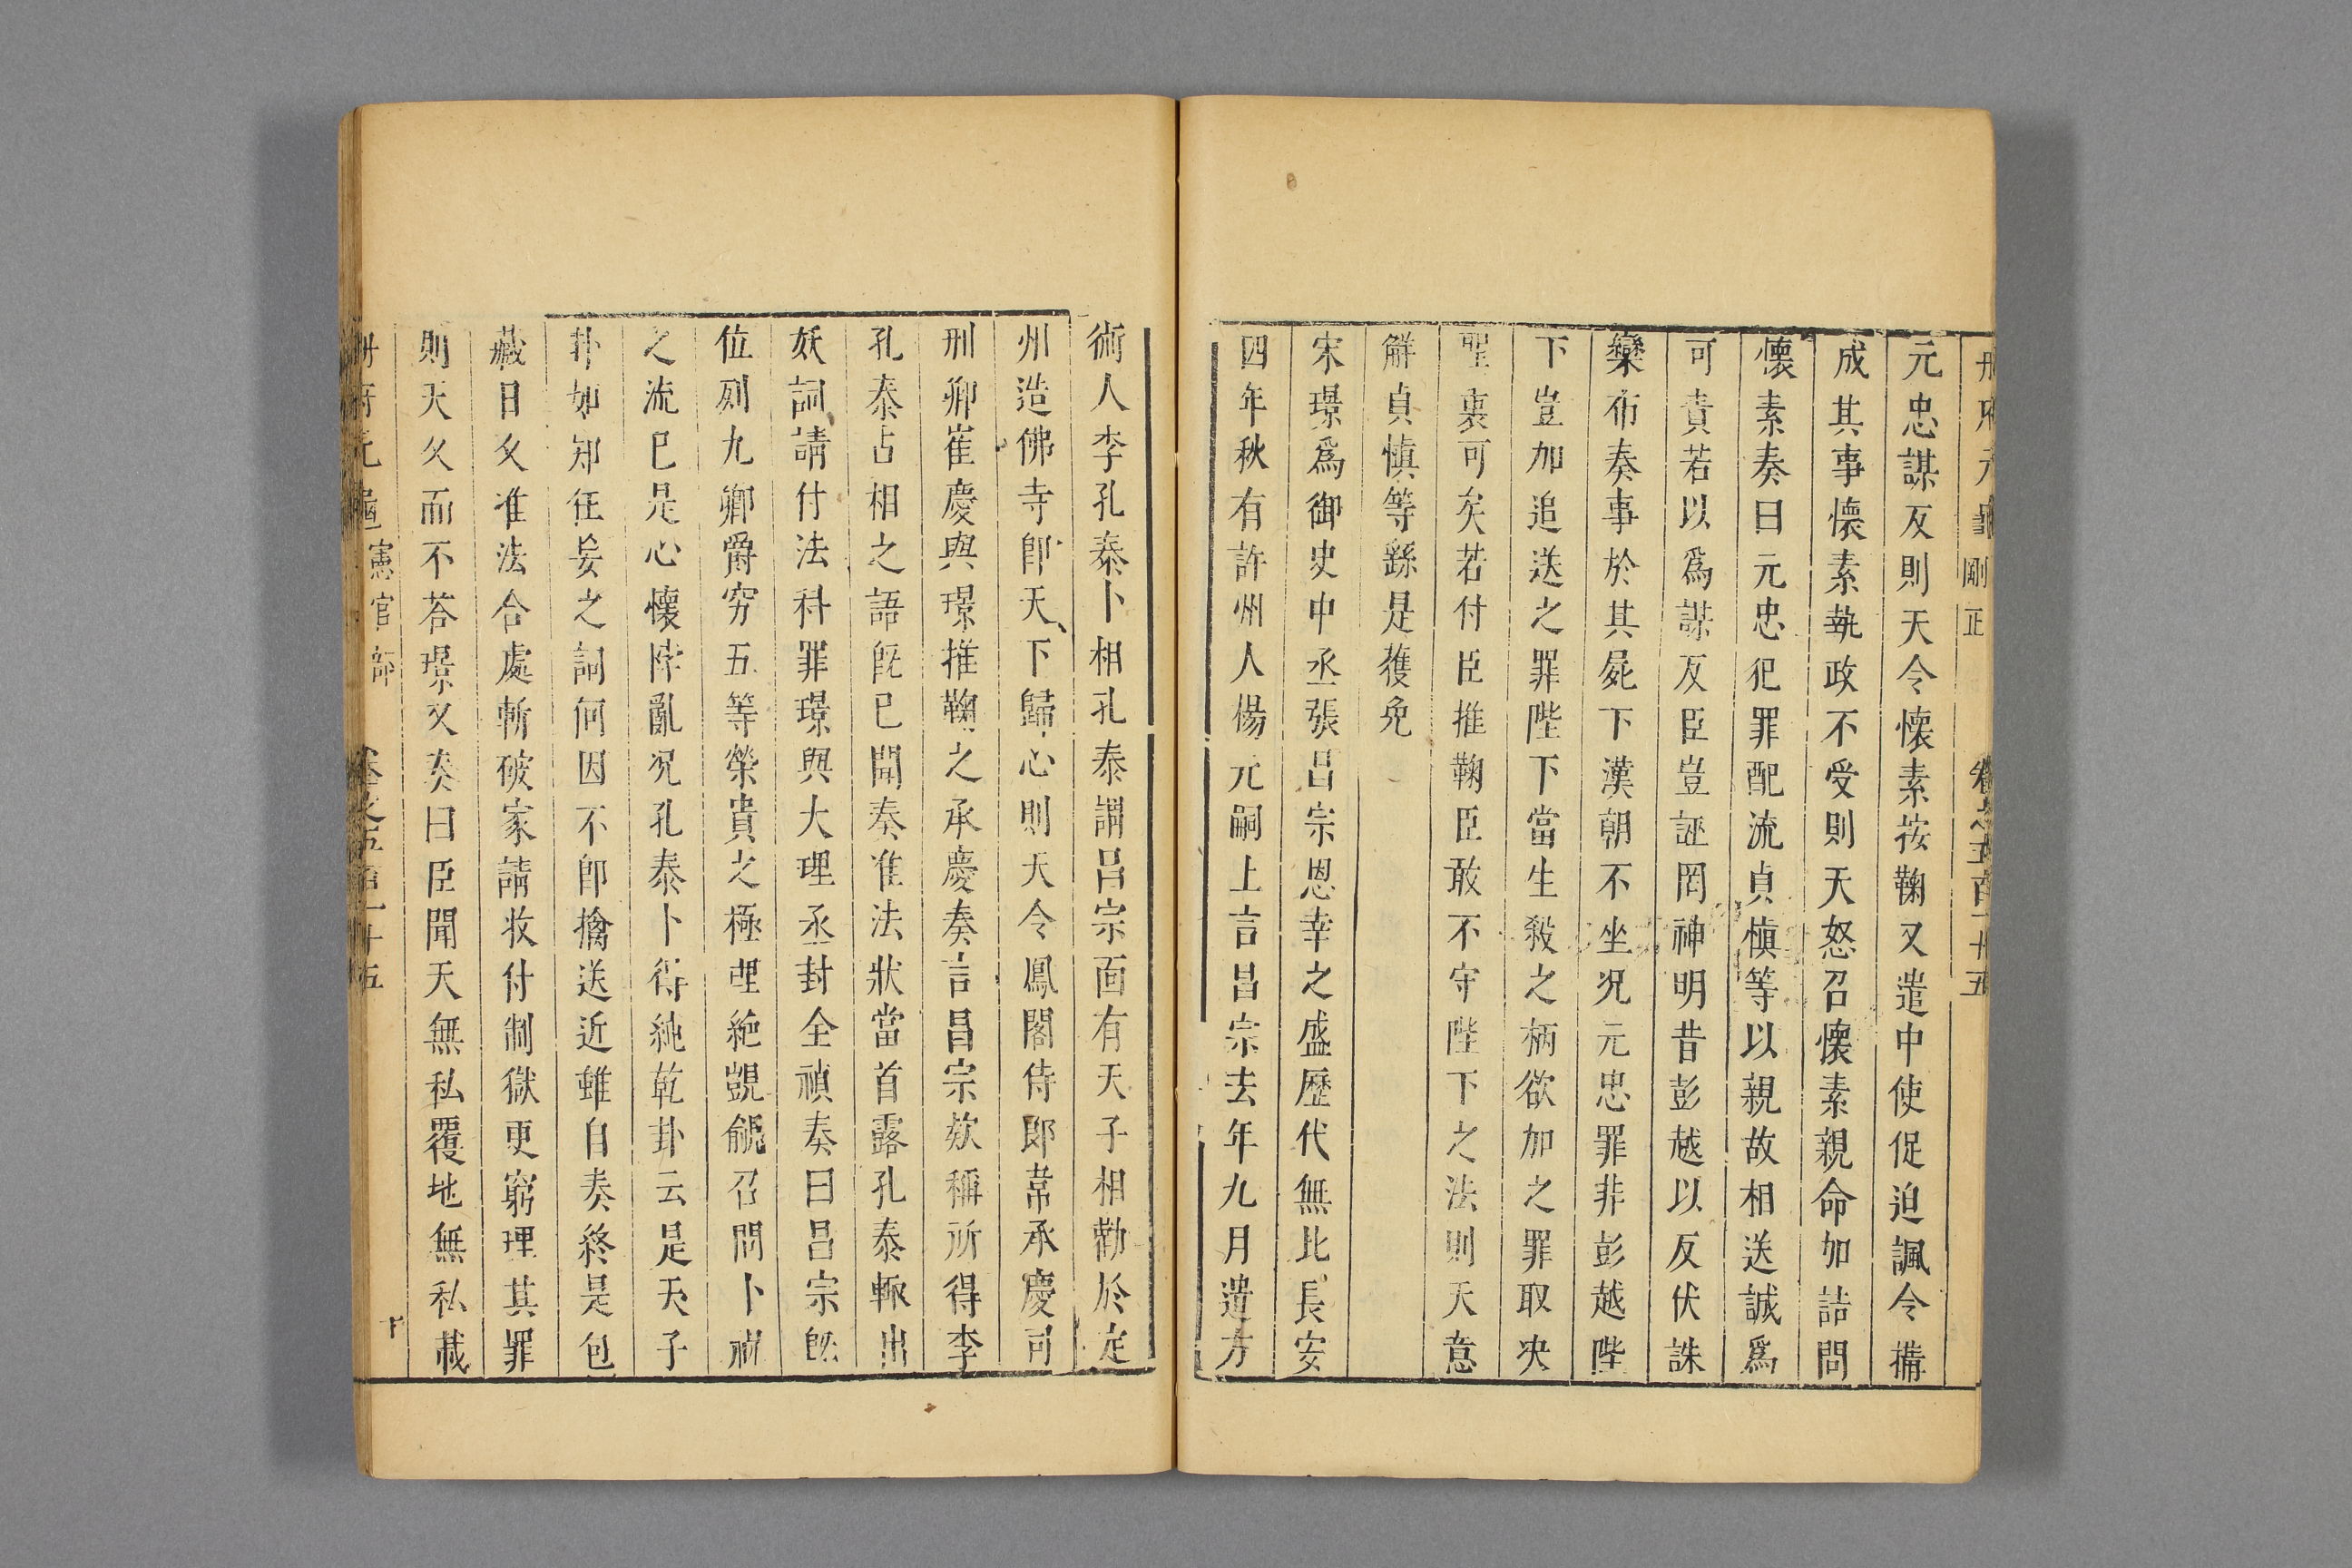 冊府元龜 剛正 卷之五百一十五
元忠謀反則天令懷素按鞠又遣中使促迫諷令構
成其事懷素執政不受則天怒召懷素親命加詰問
懷素奏曰元忠犯罪配流貞慎等以親故相送誠爲
可責若以爲謀反臣豈誣罔神明昔彭越以反伏誅
欒布奏事於其屍下漢朝不坐况元忠罪非彭越陛
下豈加追送之罪陛下當生殺之柄欲加之罪取决
聖裏可矣若付臣推鞠臣敢不守陛下之法則天意
解貞慎等繇是獲免
宋璟爲御史中丞張昌宗恩幸之盛歷代無比長安
四年秋有許州人楊元嗣上言昌宗去年九月遣方
術人李孔泰卜相孔泰謂昌宗面有天子相勸於定
州造佛寺卽天下歸心則天令鳳閣侍郎韋承慶司
刑卿崔慶與璟推鞠之承慶奏言昌宗款稱所得李
孔泰占相之語旣已聞奏准法狀當首露孔泰輒出
妖詞請付法科罪璟與大理丞封全禎奏曰昌宗旣
位列九卿爵穷五等榮貴之極理絶覬覦召問卜禎
之流已是心懷悖亂况孔泰卜得純乾卦云是天子
卦如知在妄之詞何因不卽擒送近雖自奏終是包
藏日久准法合處斬破家請收付制獄更窮理其罪
則天久而不荅璟又奏曰臣聞天無私覆地無私載
冊府元龜 憲官部 卷之五百一十五 十